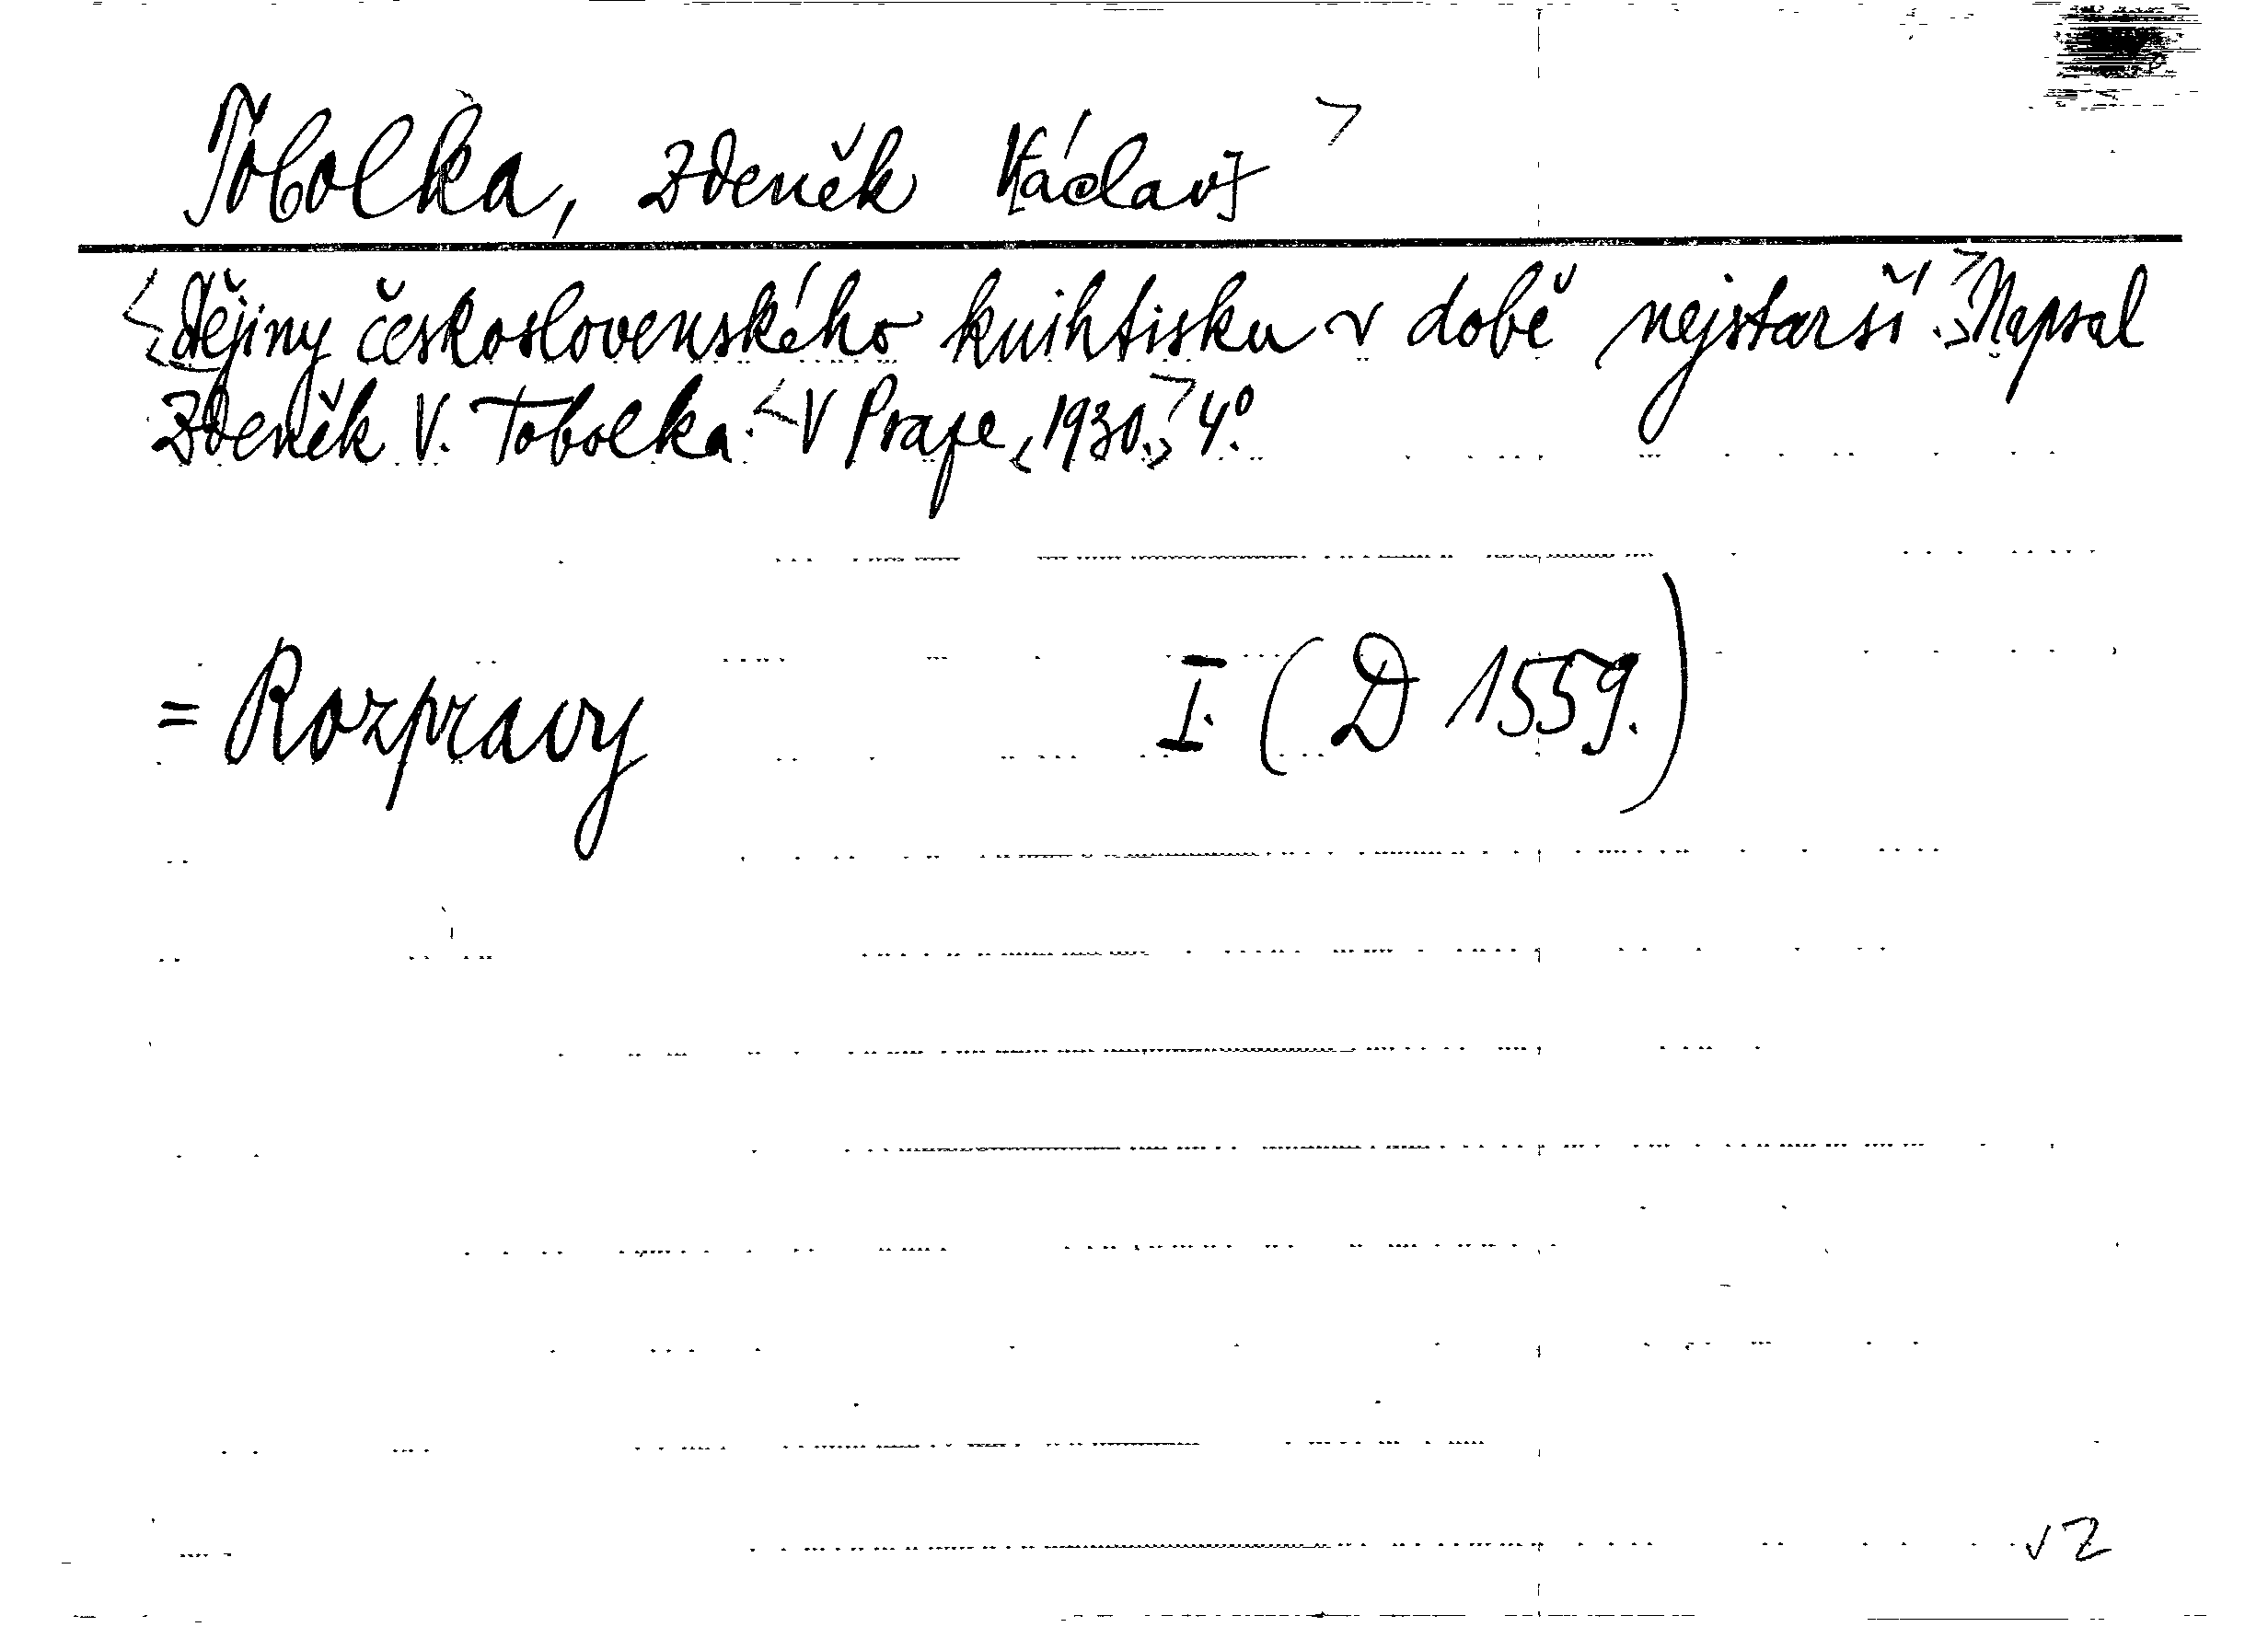 Tobolka, Zdeněk V[áclav] >
<Dějiny československého knihtisku v době nejstarší.> Napsal
Zdeněk V. Tobolka. <V Praze, 1930.> 4°.
= Rozpravy I. (D 1559.)
√ Z